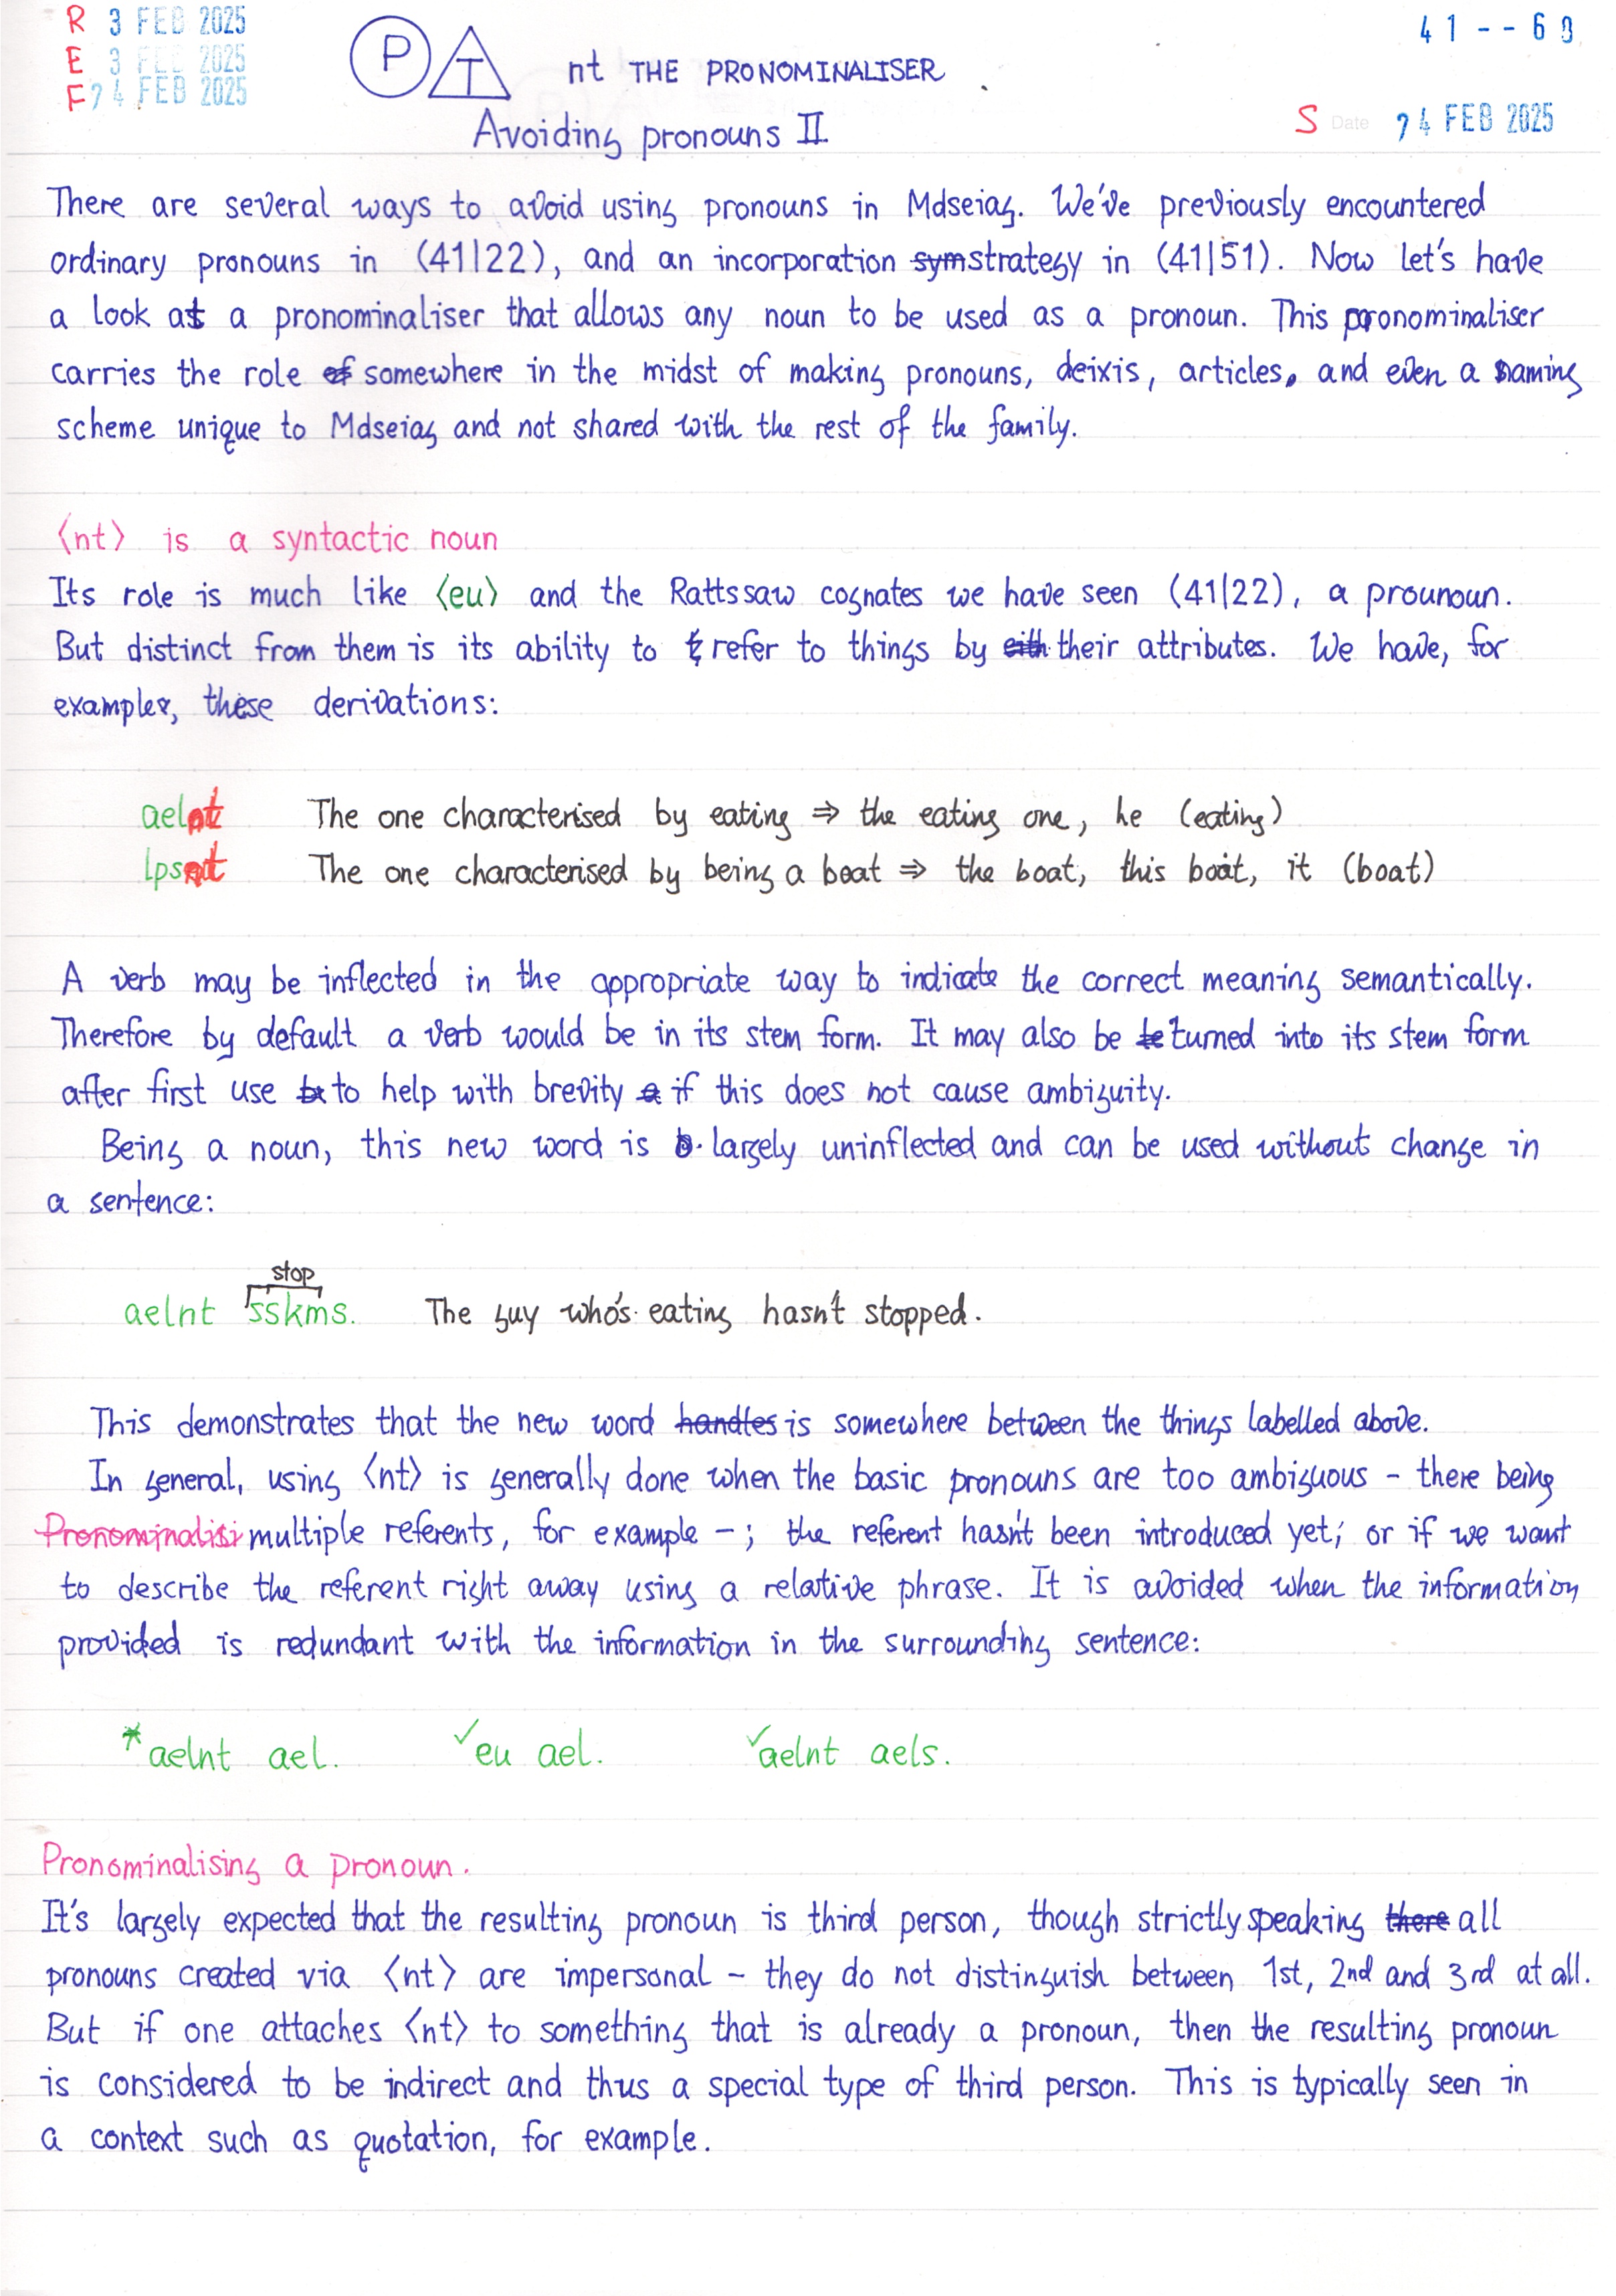 R 3 FEB 2025
E 3 FEB 2025
F 24 FEB 2025
41--60
P T nt THE PRONOMINALISER
Avoiding pronouns II
S Date 24 FEB 2025
There are several ways to avoid using pronouns in Mdseiag. We've previously encountered
ordinary pronouns in (41|22), and an incorporation sym strategy in (41|51). Now let's have
a look at a pronominaliser that allows any noun to be used as a pronoun. This pronominaliser
carries the role of somewhere in the midst of making pronouns, deixis, articles, and even a naming
scheme unique to Mdseiag and not shared with the rest of the family.
⟨nt⟩ is a syntactic noun
Its role is much like ⟨eu⟩ and the Rattssaw cognates we have seen (41|22), a prounoun.
But distinct from them is its ability to refer to things by eith their attributes. We have, for
example, these derivations:
aelnt The one characterised by eating ⇒ the eating one, he (eating)
lpsnt The one characterised by being a boat ⇒ the boat, this boat, it (boat)
A verb may be inflected in the appropriate way to indicate the correct meaning semantically.
Therefore by default a verb would be in its stem form. It may also be te turned into its stem form
after first use to help with brevity a if this does not cause ambiguity.
Being a noun, this new word is largely uninflected and can be used without change in
a sentence:
stop
aelnt sskms. The guy who's eating hasn't stopped.
This demonstrates that the new word handles is somewhere between the things labelled above.
In general, using ⟨nt⟩ is generally done when the basic pronouns are too ambiguous – there being
Pronominalisi multiple referents, for example –; the referent hasn't been introduced yet; or if we want
to describe the referent right away using a relative phrase. It is avoided when the information
provided is redundant with the information in the surrounding sentence:
*aelnt ael. ✓eu ael. ✓aelnt aels.
Pronominalising a pronoun.
It's largely expected that the resulting pronoun is third person, though strictly speaking there all
pronouns created via ⟨nt⟩ are impersonal – they do not distinguish between 1st, 2nd and 3rd at all.
But if one attaches ⟨nt⟩ to something that is already a pronoun, then the resulting pronoun
is considered to be indirect and thus a special type of third person. This is typically seen in
a context such as quotation, for example.